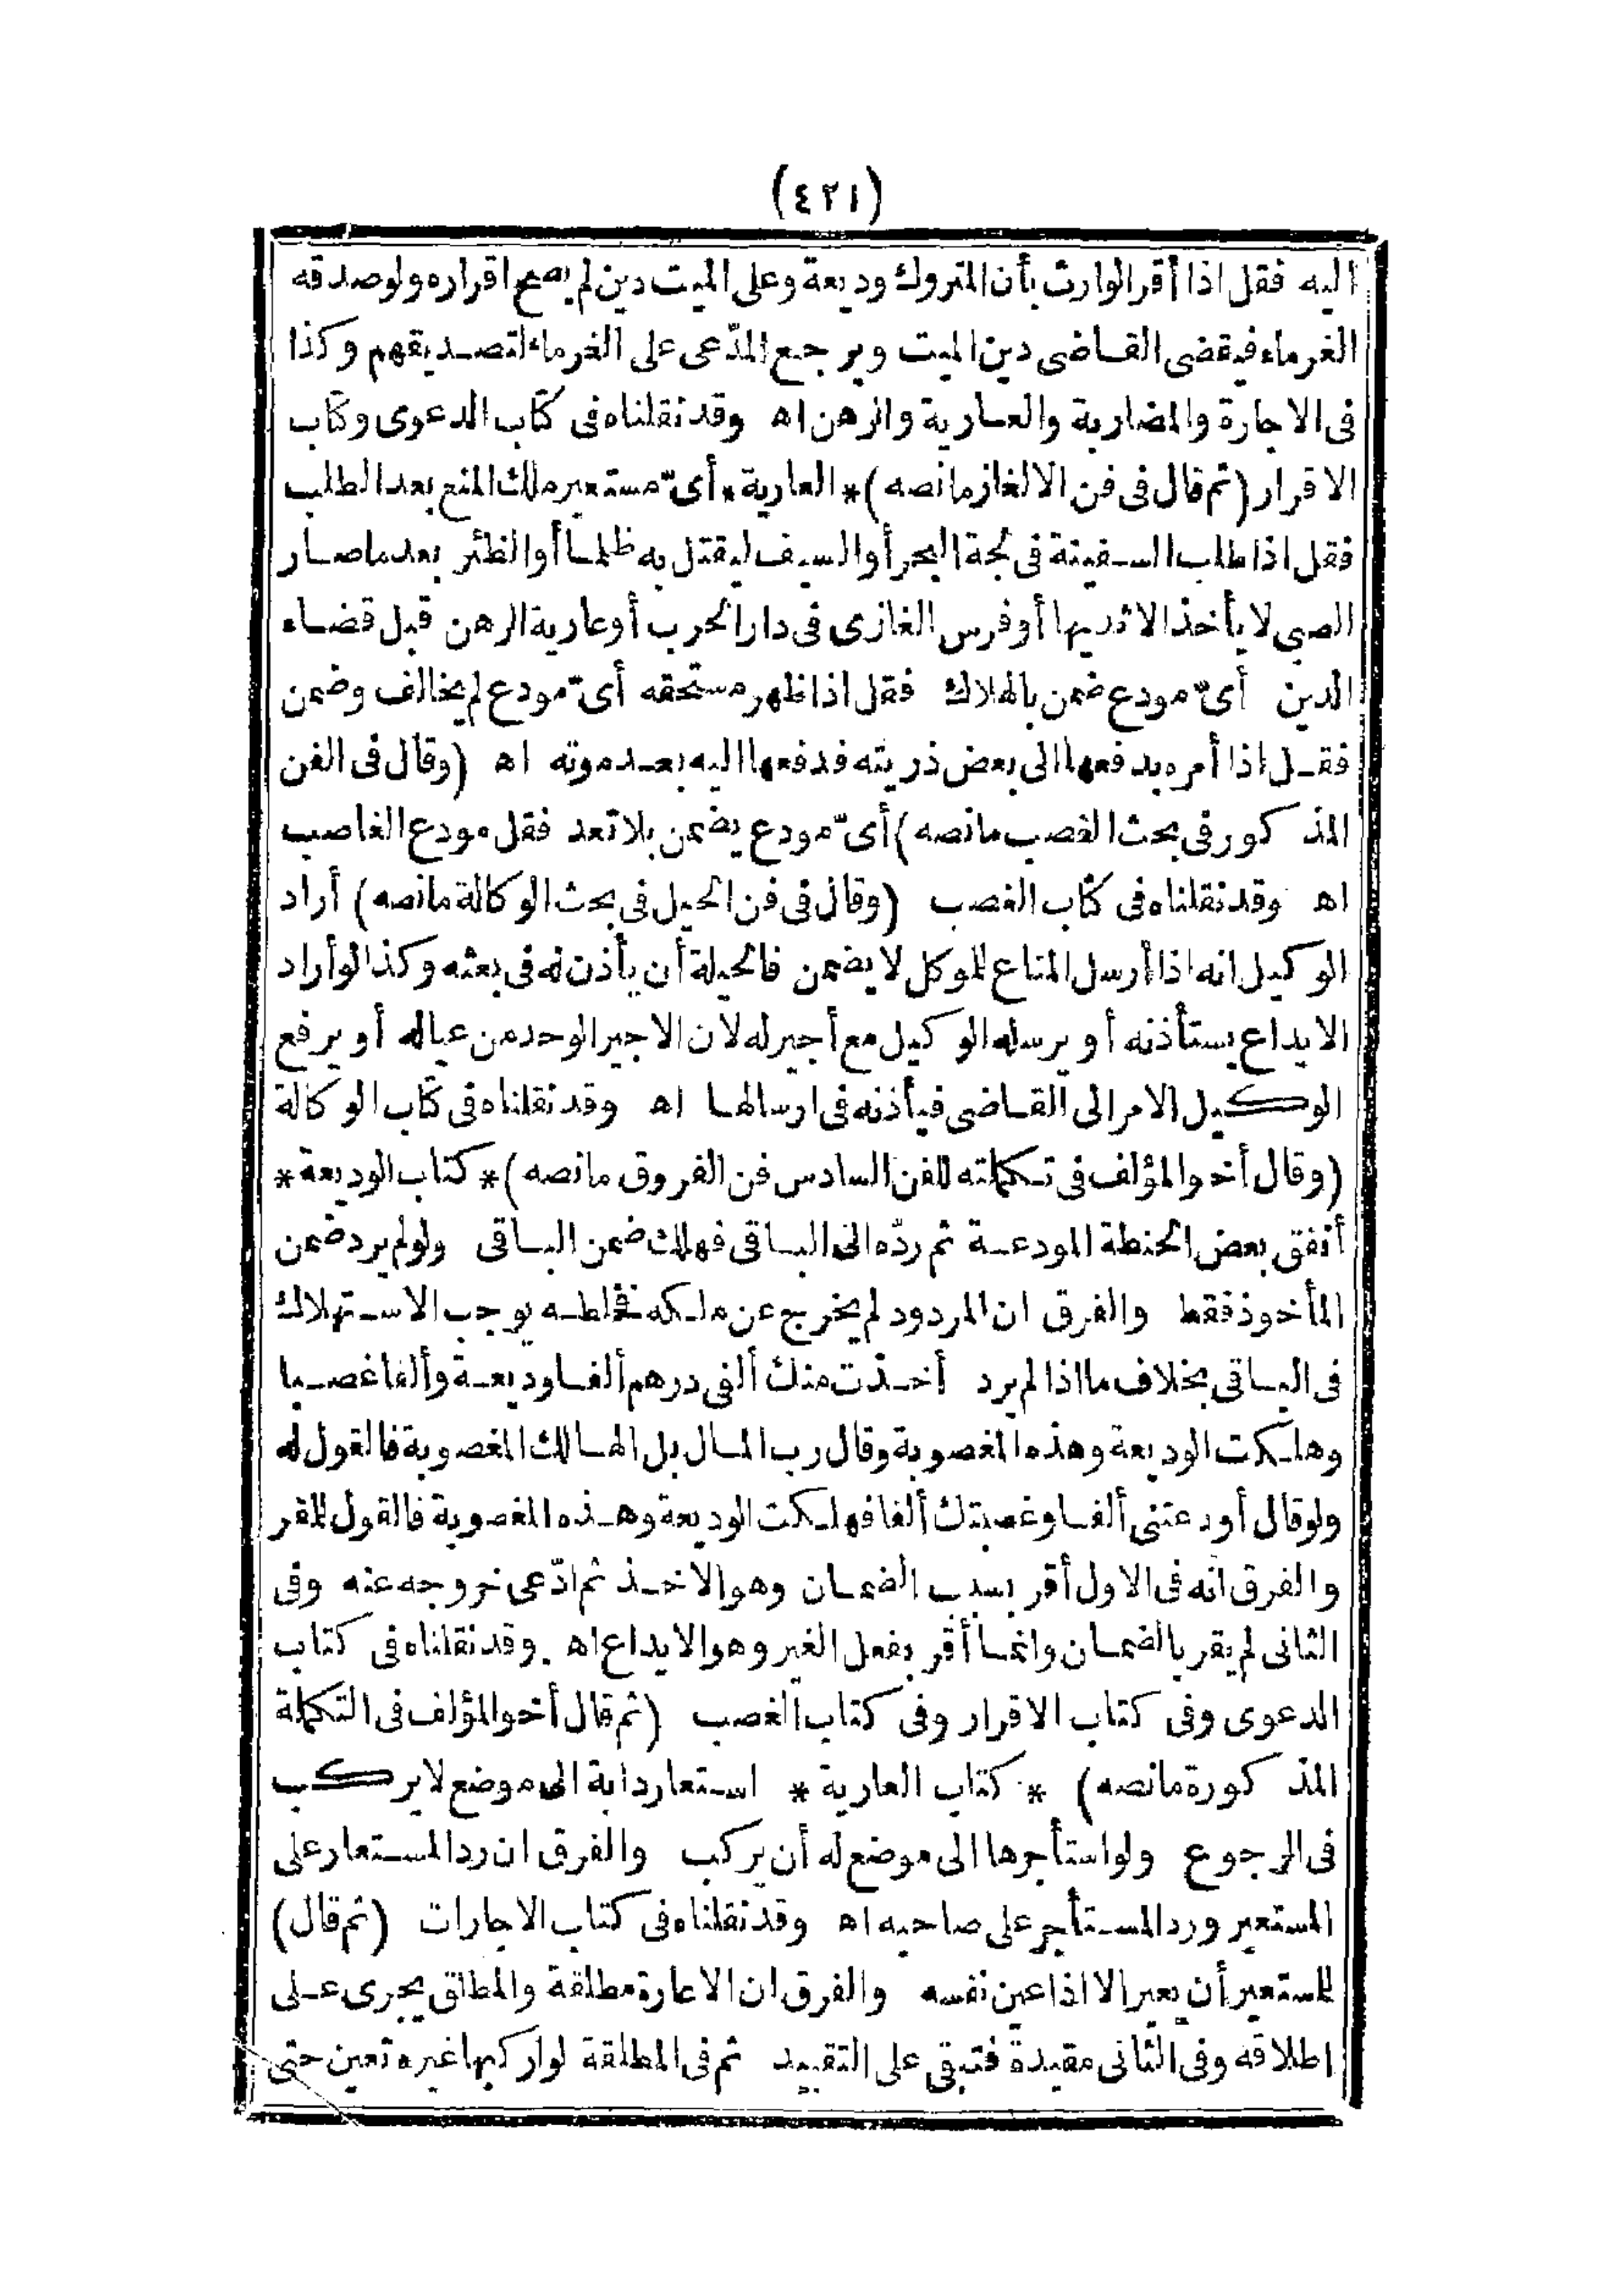 (٤٢١)
اليه فقل اذا أقر الوارث بأن المتروك وديعة وعلى الميت دين لم يصح اقراره ولو صدقه
الغرماء فيقضى القاضى دين الميت ويرجع المدّعى على الغرماء لتصديقهم وكذا
فى الاجارة والمضاربة والعارية والرهن اه وقد نقلناه فى كتاب الدعوى وكتاب
الاقرار (ثم قال فى فن الالغاز مانصه) * العارية * أىّ مستعير ملك المنع بعد الطلب
فقل اذا طلب السفينة فى لجة البحر أو السيف ليقتل به ظلما أو الظئر بعد ما صار
الصبى لا يأخذ الا ثديها أو فرس الغازى فى دار الحرب أو عارية الرهن قبل قضاء
الدين أىّ مودع ضمن بالهلاك فقل اذا ظهر مستحقه أىّ مودع لم يخالف وضمن
فقل اذا أمره بدفعها الى بعض ذريته فدفعها اليه بعد موته اه (وقال فى الفن
المذكور فى بحث الغصب مانصه) أىّ مودع يضمن بلا تعد فقل مودع الغاصب
اه وقد نقلناه فى كتاب الغصب (وقال فى فن الحيل فى بحث الوكالة مانصه) أراد
الوكيل انه اذا أرسل المتاع للموكل لا يضمن فالحيلة أن يأذن له فى بعثه وكذا لو أراد
الايداع يستأذنه أو يرسله الوكيل مع أجير له لان الاجير الوحد من عياله أو يرفع
الوكيل الامر الى القاضى فيأذنه فى ارسالها اه وقد نقلناه فى كتاب الوكالة
(وقال أخو المؤلف فى تكملته للفن السادس فن الفروق مانصه) * كتاب الوديعة *
أنفق بعض الحنطة المودعة ثم ردّه الى الباقى فهلك ضمن الباقى ولو لم يرد ضمن
المأخوذ فقط والفرق ان المردود لم يخرج عن ملكه فخلطه يوجب الاستهلاك
فى الباقى بخلاف ما اذا لم يرد أخذت منك ألفى درهم ألفا وديعة وألفا غصبا
وهلكت الوديعة وهذه المغصوبة وقال رب المال بل الهالك المغصوبة فالقول له
ولو قال أودعتنى ألفا وغصبتك ألفا فهلكت الوديعة وهذه المغصوبة فالقول للمقر
والفرق انه فى الاول أقر بسبب الضمان وهو الاخذ ثم ادّعى خروجه عنه وفى
الثانى لم يقر بالضمان وانما أقر بفعل الغير وهو الايداع اه وقد نقلناه فى كتاب
الدعوى وفى كتاب الاقرار وفى كتاب الغصب (ثم قال أخو المؤلف فى التكملة
المذكورة مانصه) * كتاب العارية * استعار دابة الى موضع لا يركب
فى الرجوع ولو استأجرها الى موضع له أن يركب والفرق ان رد المستعار على
المستعير ورد المستأجر على صاحبه اه وقد نقلناه فى كتاب الاجارات (ثم قال)
للمستعير أن يعير الا اذا عين نفسه والفرق ان الاعارة مطلقة والمطلق يجرى على
اطلاقه وفى الثانى مقيدة فتبقى على التقييد ثم فى المطلقة لو اركبها غيره تعين حتى